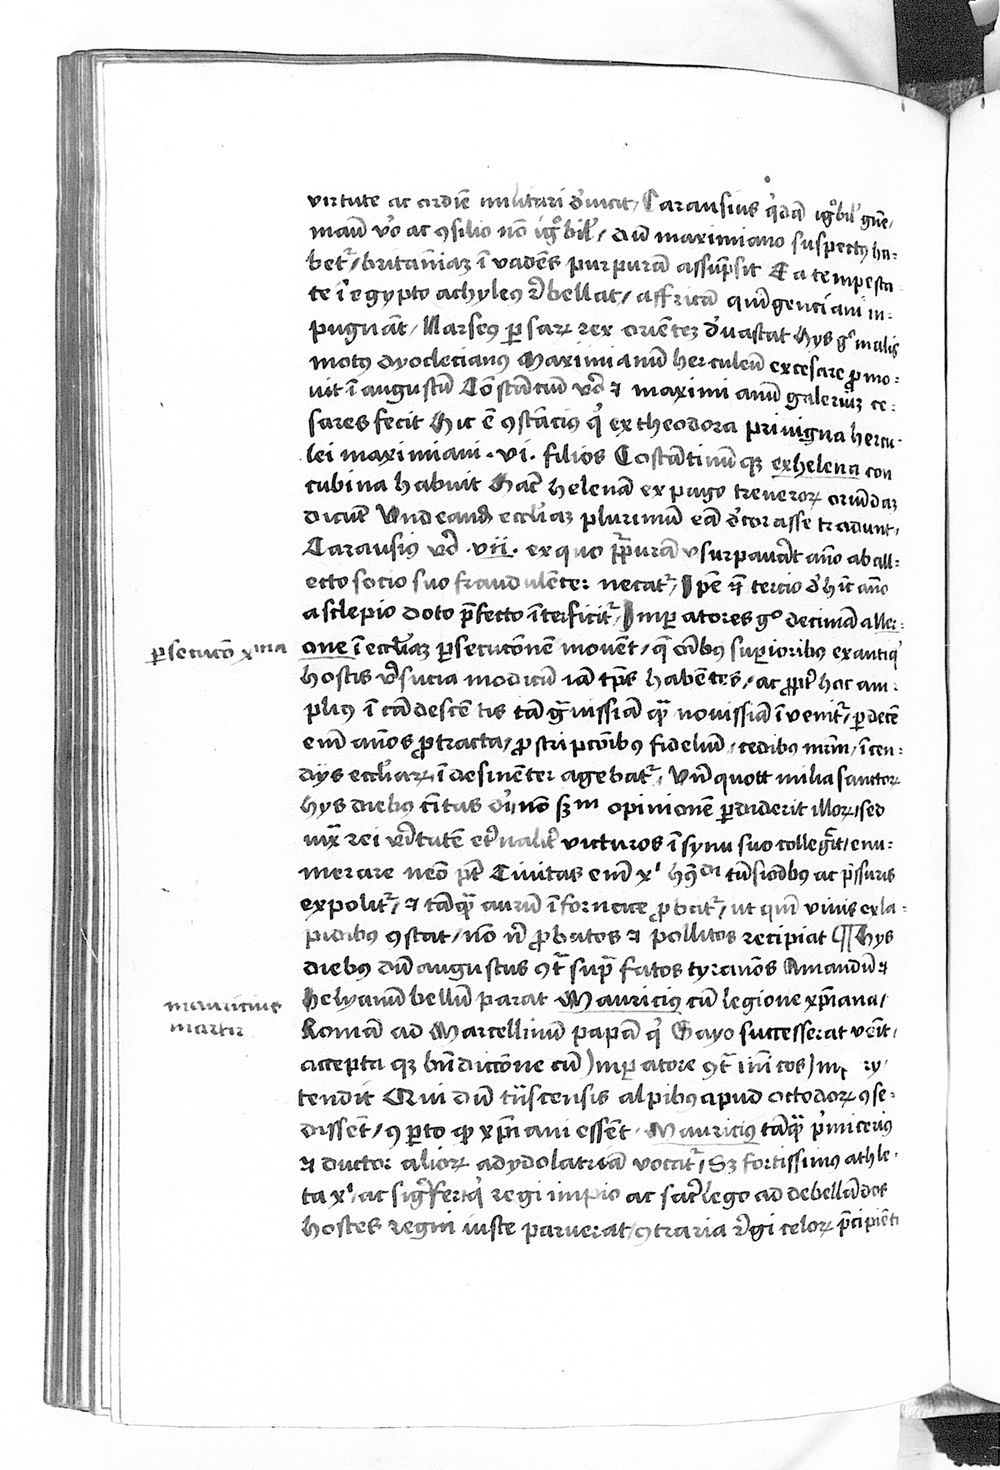 virtute ac ordiē militari d'uicit / Carausius q'dā igº̄bil' gn̄e /
manu v'o ac ꝯsilio nō igº̄bil' / dū maximiano suspectꝰ ha-
bet' / britaniaꝫ ī vadēs purpurā assūpsit Ea tempesta
te ī egypto achyleꝰ r̄bellat / affricā quīgenciani in-
pugnāt / Narseꝰ ꝑsarꝝ rex orienteꝫ d'uastat Hys gº malis
motꝰ dyoclecianꝰ Maximianū herculeū ex cesare ꝓmo-
uit ī augustū Cōstātiū v'o ⁊ maximianū galeriūꝫ ce-
sares fecit Hic ē ꝯstāciꝰ q' ex theodora priuigna hercu-
lei maximiani · vi · filios Costātinū qꝫ ex helena con
cubina habuit Hāc helenā ex pago treuerorꝝ oriūdaꝫ
dicūt Vnde eand' eccl'iaꝫ plurimū eā d'corasse tradunt /
Carausiꝰ v'o · vii · ex quo pꝑurā vsurpauāt año ab all-
ecto socio suo fraudulēter necat' / Ipē ꝟ tercio d'hīc año
asclepio doto p̄fecto īterficit' / Imꝑatores gº decimā a ner-
one ī eccl'iaꝫ ꝑsecutōnem mouēt / q̄ oībus suꝑioribꝰ ex antiq'
hostis v'sucia modicū iā tp̄s habētes / ac ꝓpt' hoc am-
pliꝰ ī cādescētis tā g̃uissīa q̃ nouissīa īuenit' / ꝑ decē
em̄ años ꝓtracta / ꝓstripcōibꝰ fidelīu / cedibꝰ mr̄m / īcen-
dijs eccl'iarꝝ īdesinēter agebat' / Vn̄ quott milia sanctorꝝ
hys diebꝰ cīitas di / nō sꝫm opinionē ꝑdiderit illorꝝ / sed
iux̄ rei v'itatē et'naliť victuros ī synu suo collegīt / enu-
merare nēo pt̄ Ciuitas em̄ xⁱ hꝰ̄ di tūsiōbꝰ ac p̄ssuris
expolit' / ⁊ tāq̃ aurū ī fornace ꝓbat' / ut quī viuis ex la-
pidibꝰ ꝯstat / nō n' ꝓbatos ⁊ pollitos recipiat ¶ Hys
diebꝰ dū augustus ꝯt̃ sup̃fatos tyranōs Amandū ⁊
Helyanū bellū parat Mauriciꝰ cū legione xp̄iana /
Romā ad Marcellinū papā q' Gayo successerat venīt /
accepta qꝫ bn̄dictōne cū Imꝑatore ꝯt̃ inīicos
tendit Qui dū tīscensis alpibꝰ apud octodorꝝ ꝯse-
dissēt / ꝯꝑto qꝫ xp̄iani essēt · Mauriciꝰ tāq̃ p'miceriꝰ
⁊ ductor aliorꝝ ad ydolatriā vocat' / Sꝫ fortissimꝰ athle-
ta xⁱ ac signifer q' regi impio ac sac'lego ad debellādos
hostes regni iuste paruerat / ꝯtraria r̄gi celorꝝ p̄cipiēti
ꝑsecutō xma
mauricius
martir